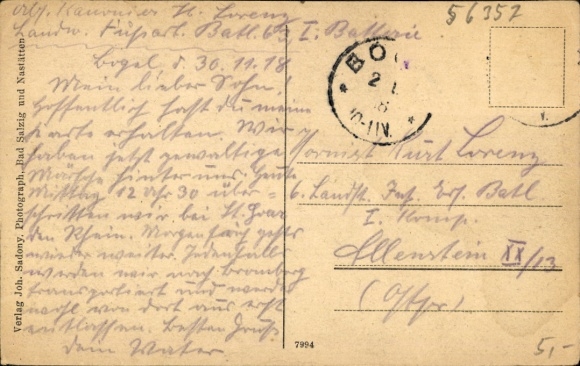 Abs. Kanonier H. Lorenz
Landw. Fußart. Batl. 63, I. Batterie.
Bogel d. 30.11.18
Mein lieber Sohn!
Hoffentlich hast du meine
Karte erhalten. Wir
haben jetzt gewaltige
Märsche hinter uns. Heute
Mittag 12 Uhr 30 über-
schritten wir bei St. Goar
den Rhein. Morgen früh gehts
wieder weiter. Jedenfalls
werden wir nach Bromberg
transportiert und werde
wohl von dort aus erst
entlassen. Besten Gruß
dein Vater
56352
BOG
2
8
10-11V.
V.
Hornist Kurt Lorenz
6. Landst. Inf. Ers. Batl
I. Komp.
Allenstein XX/13
(Ostpr)
Verlag Joh. Sadony, Photograph, Bad Salzig und Nastätten
7994
5,-